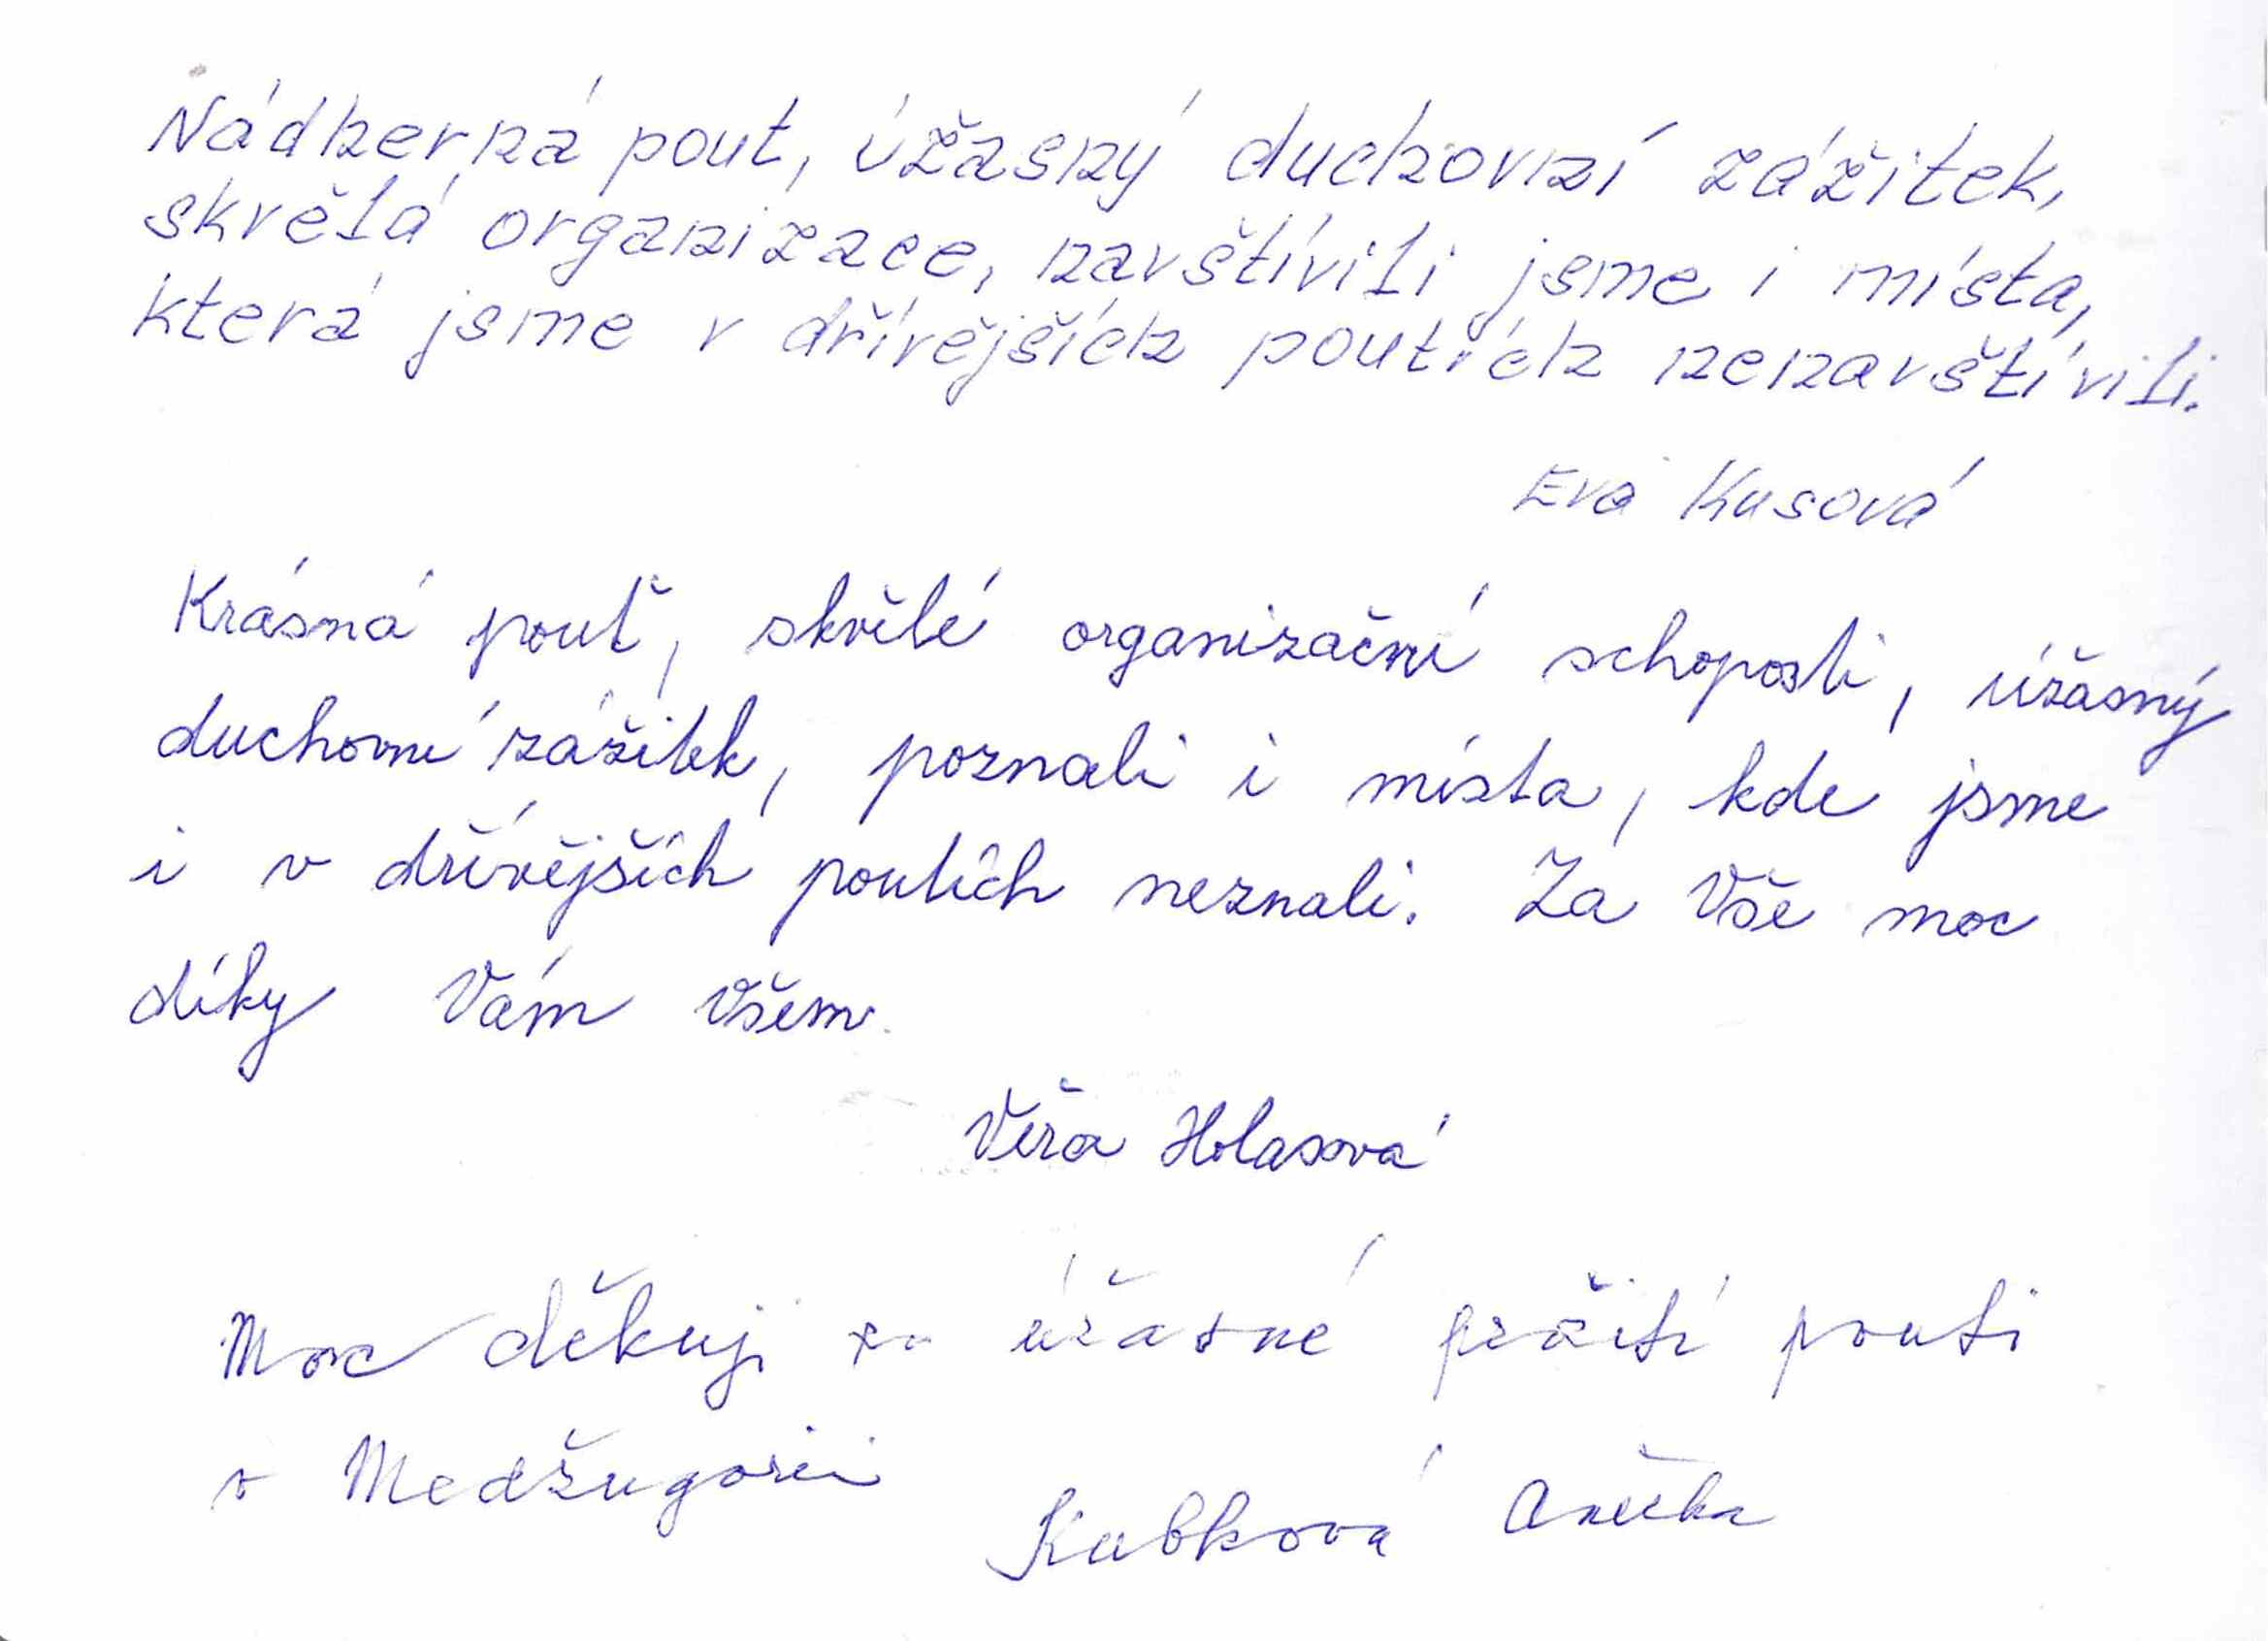 Nádherná pout, úžasný duchovní zážitek,
skvělá organizace, navštívili jsme i místa,
která jsme v dřívějších poutích nenavštívili.
Eva Kusová
Krásná pouť, skvělé organizační schoposti, úžasný
duchovní zážitek, poznali i místa, kde jsme
i v dřívějších poutích neznali. Za Vše moc
díky Vám všem.
Věra Holasová
Moc děkuji za úžasné prožití pouti
v Medžugorii
Kubková Anečka